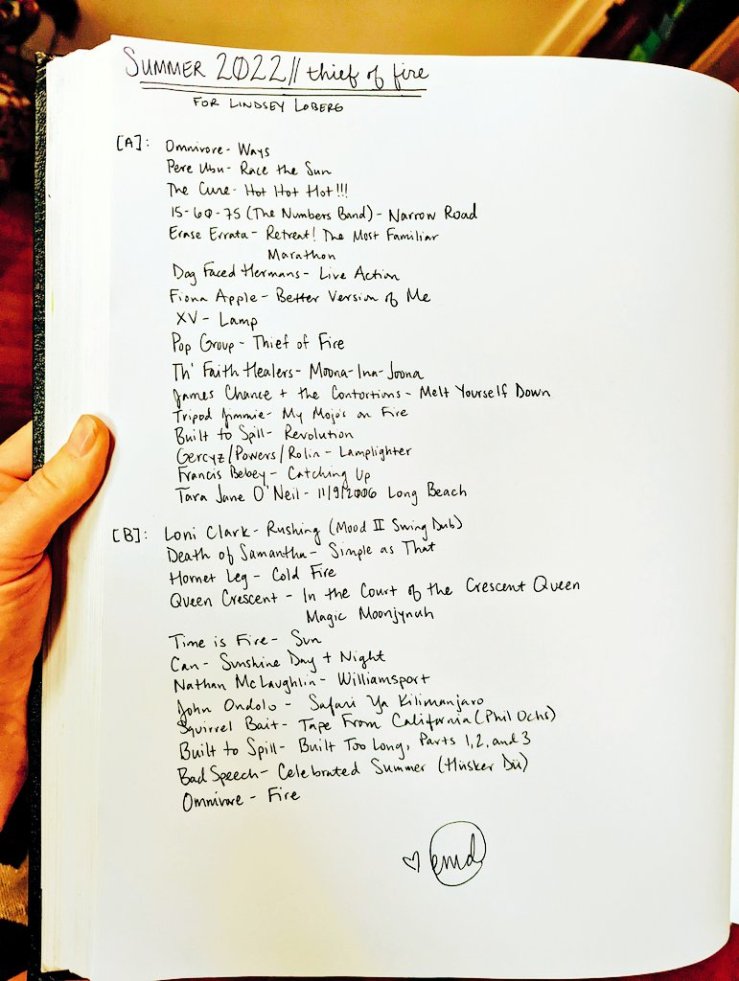 SUMMER 2022 // thief of fire
FOR LINDSEY LOBERG
[A]: Omnivore - Ways
Pere Ubu - Race the Sun
The Cure - Hot Hot Hot!!!
15-60-75 (The Numbers Band) - Narrow Road
Erase Errata - Retreat! The Most Familiar
Marathon
Dog Faced Hermans - Live Action
Fiona Apple - Better Version of Me
XV - Lamp
Pop Group - Thief of Fire
Th' Faith Healers - Moona-Inn-Joona
James Chance + the Contortions - Melt Yourself Down
Tripod Jimmie - My Mojo's on Fire
Built to Spill - Revolution
Gercyz/Powers/Rolin - Lamplighter
Francis Bebey - Catching Up
Tara Jane O'Neil - 11/9/2006 Long Beach
[B]: Loni Clark - Rushing (Mood II Swing Dub)
Death of Samantha - Simple as That
Hornet Leg - Cold Fire
Queen Crescent - In the Court of the Crescent Queen
Magic Moonjynah
Time is Fire - Sun
Can - Sunshine Day + Night
Nathan McLaughlin - Williamsport
John Ondolo - Safari Ya Kilimanjaro
Squirrel Bait - Tape From California (Phil Ochs)
Built to Spill - Built Too Long, Parts 1, 2, and 3
Bad Speech - Celebrated Summer (Hüsker Dü)
Omnivore - Fire
♡ emd